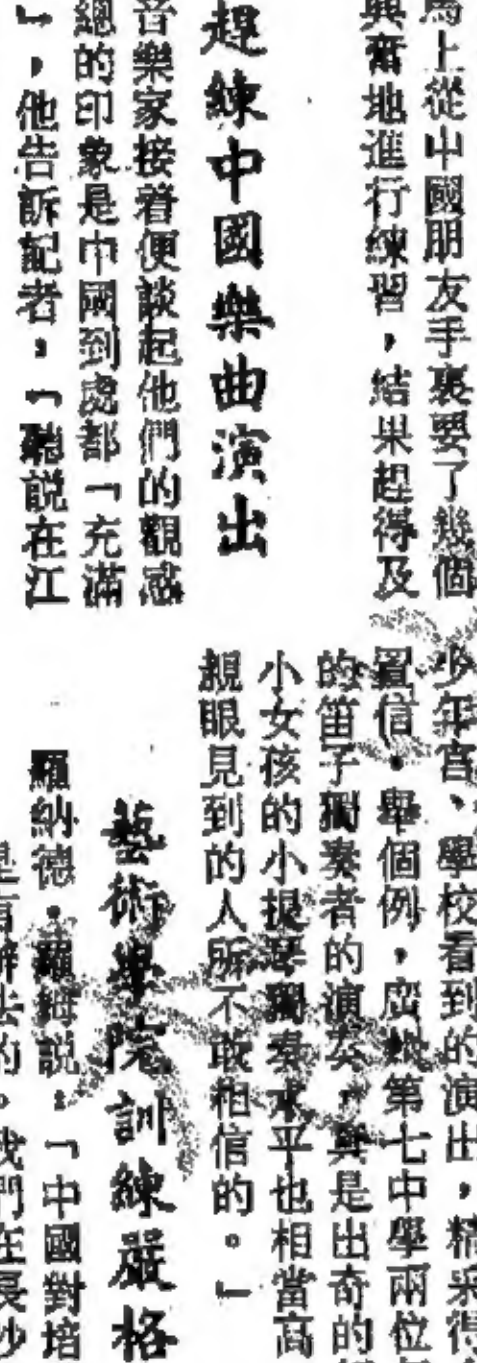 馬上從中國朋友手裏要了幾個
興奮地進行練習，結果趕得及
趕練中國樂曲演出
音樂家接着便談起他們的觀感
總的印象是中國到處都「充滿
」，他告訴記者：「聽說在江
少年宮、學校看到的演出，精采得
置信。舉個例，廣州第七中學兩位
的笛子獨奏者的演奏，真是出奇的
小女孩的小提琴獨奏水平也相當高
親眼見到的人所不敢相信的。」
藝術學院訓練嚴格
羅納德・羅姆說：「中國對培
是有辦法的。我們在長沙